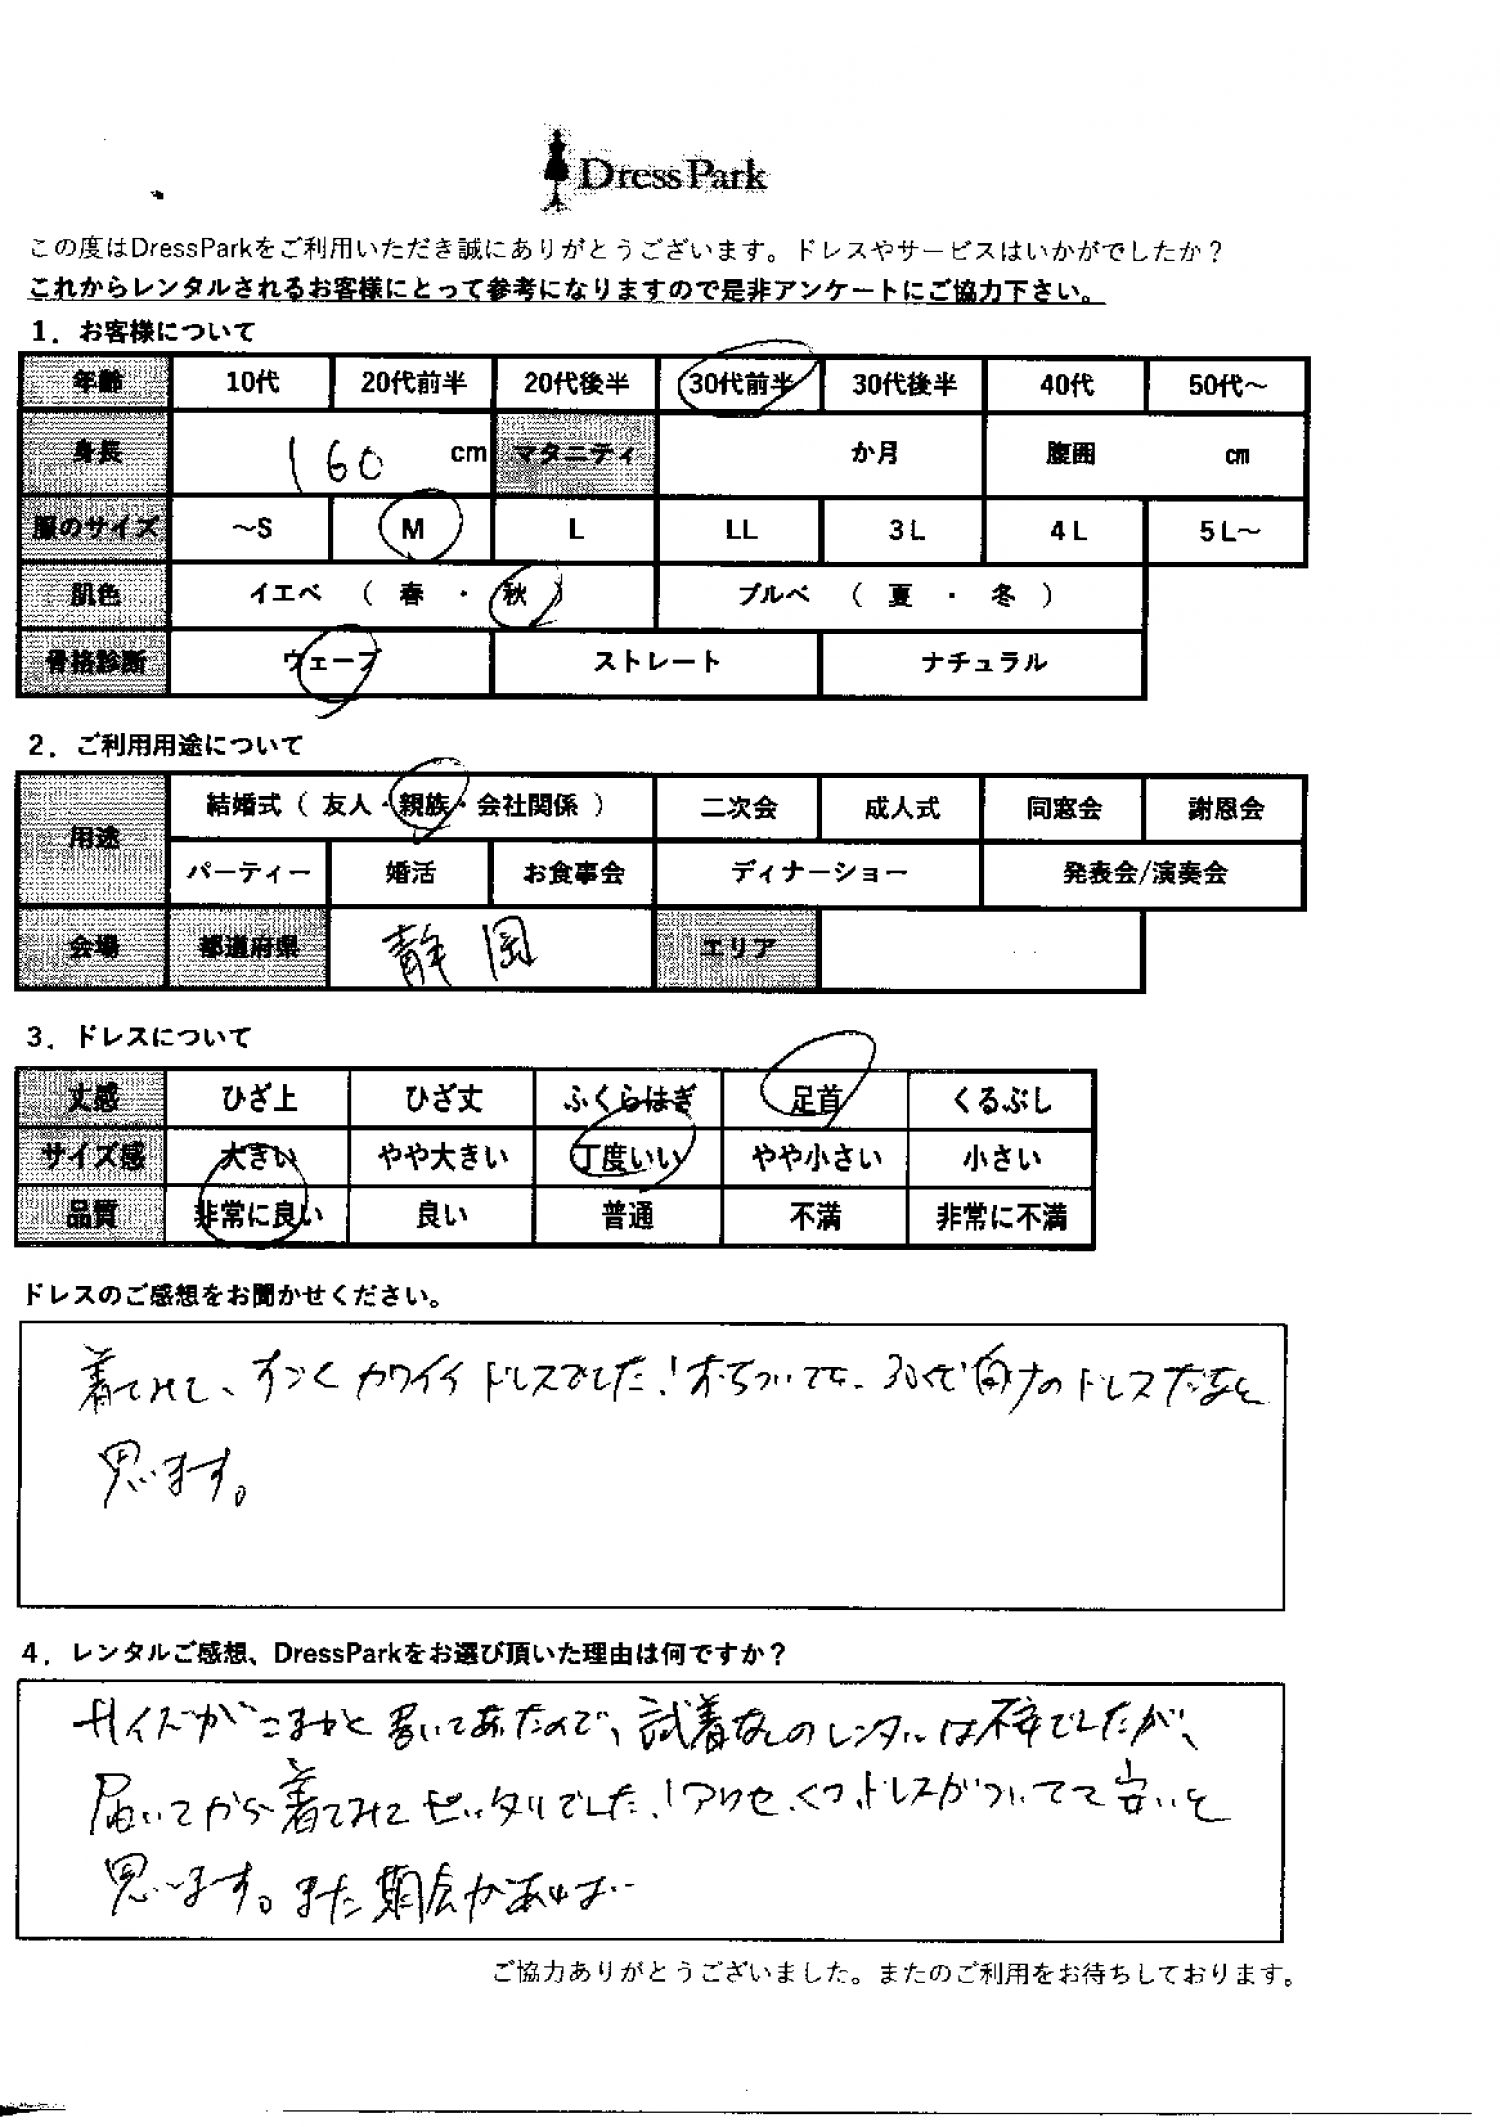 DressPark
この度はDressParkをご利用いただき誠にありがとうございます。ドレスやサービスはいかがでしたか？
これからレンタルされるお客様にとって参考になりますので是非アンケートにご協力下さい。
1．お客様について
年齢 10代 20代前半 20代後半 30代前半 30代後半 40代 50代～
身長 160 cm マタニティ か月 腹囲 cm
服のサイズ ～S M L LL 3L 4L 5L～
肌色 イエベ （ 春 ・ 秋 ） ブルベ （ 夏 ・ 冬 ）
骨格診断 ウェーブ ストレート ナチュラル
2．ご利用用途について
用途 結婚式（ 友人・親族・会社関係 ） 二次会 成人式 同窓会 謝恩会
パーティー 婚活 お食事会 ディナーショー 発表会/演奏会
会場 都道府県 静岡 エリア
3．ドレスについて
丈感 ひざ上 ひざ丈 ふくらはぎ 足首 くるぶし
サイズ感 大きい やや大きい 丁度いい やや小さい 小さい
品質 非常に良い 良い 普通 不満 非常に不満
ドレスのご感想をお聞かせください。
着てみて、すごくカワイイドレスでした！おちついてて、30代向けのドレスだなと
思います。
4．レンタルご感想、DressParkをお選び頂いた理由は何ですか？
サイズがこまかと書いてあたので、試着なしのレンタルは不安でしたが、
届いてから着てみてピッタリでした！アクセ、くつ、ドレスがついてて安いと
思います。また期会があれば…
ご協力ありがとうございました。またのご利用をお待ちしております。